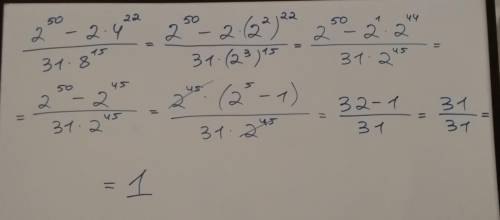 (2^50 − 2 · 4^22) / (31 · 8^15) = (2^50 − 2 · (2^2)^22) / (31 · (2^3)^15) = (2^50 − 2^1 · 2^44) / (31 · 2^45) =
= (2^50 − 2^45) / (31 · 2^45) = (2^45 · (2^5 − 1)) / (31 · 2^45) = (32 − 1) / 31 = 31 / 31 =
= 1